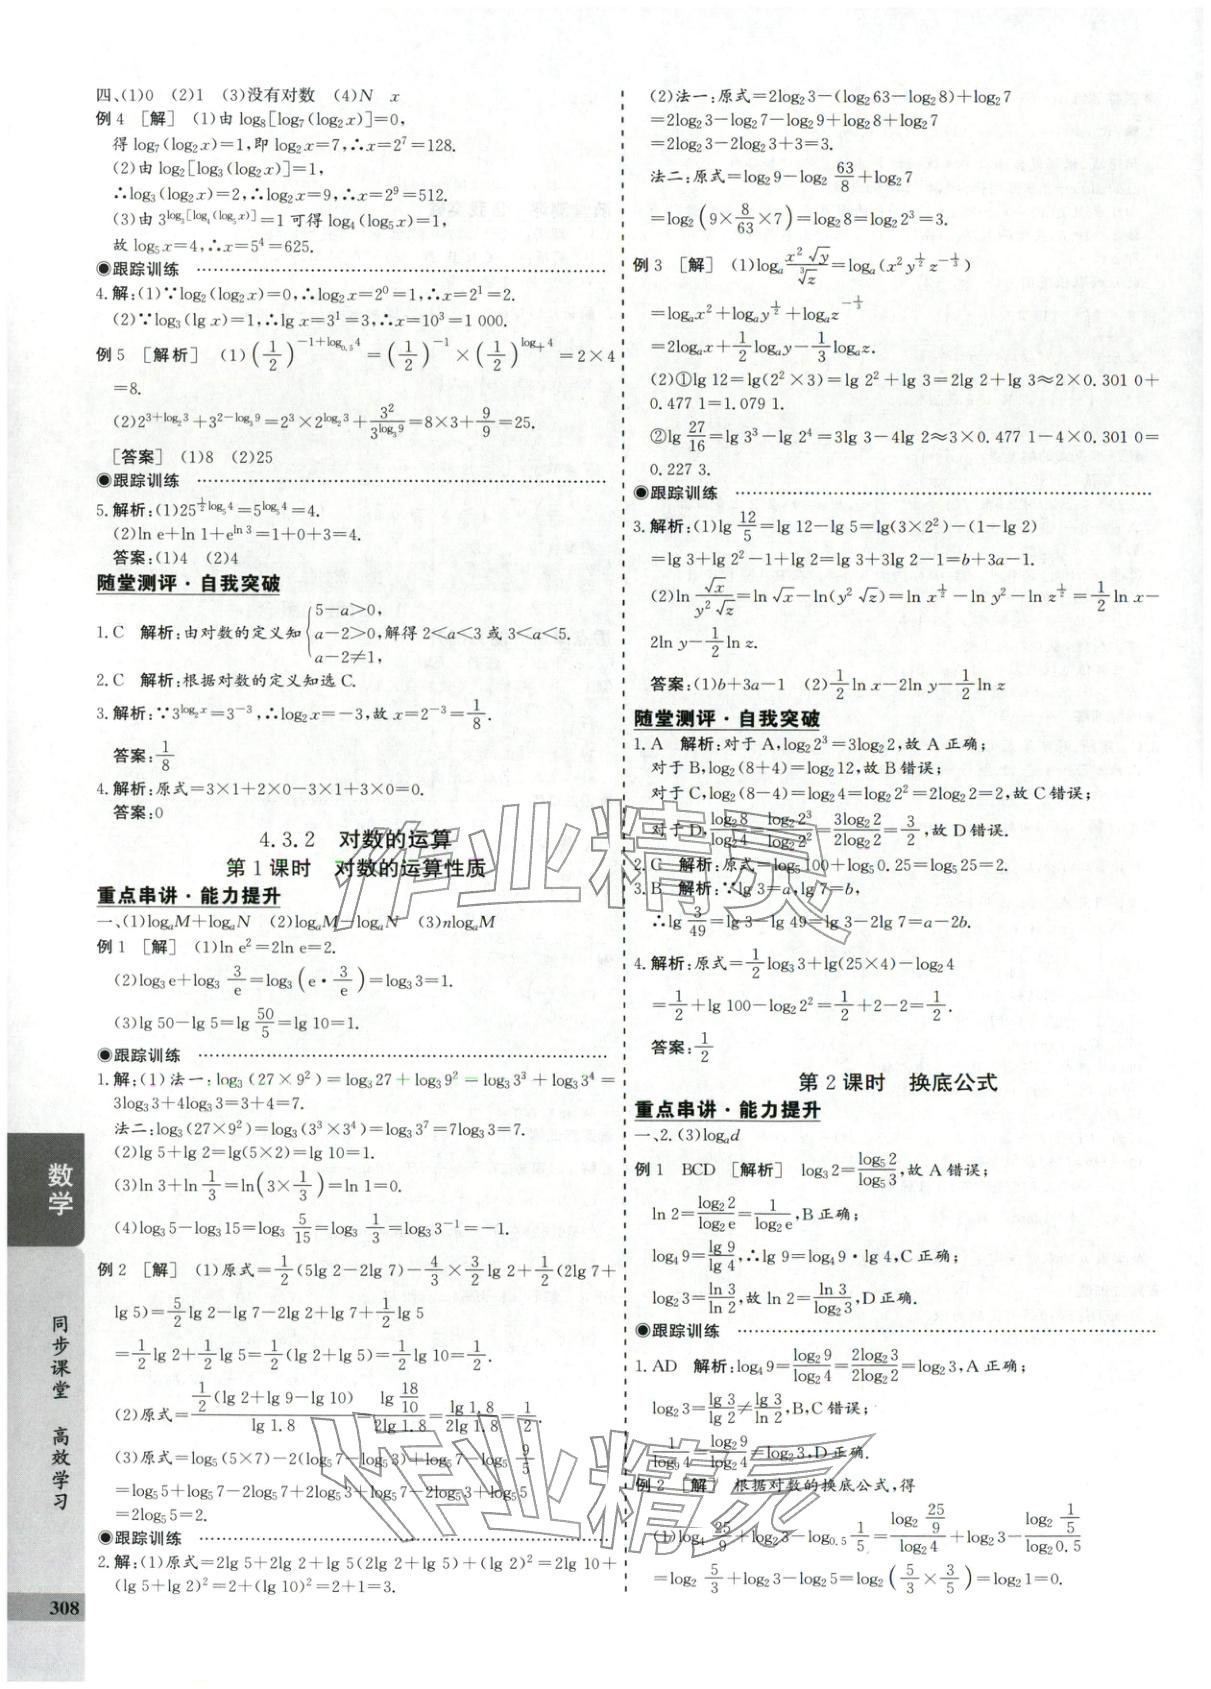 四、(1)0　(2)1　(3)没有对数　(4)N　x
例4　[解]　(1)由 log₈[log₇(log₂x)]=0,
得 log₇(log₂x)=1,即 log₂x=7,∴x=2⁷=128.
(2)由 log₂[log₃(log₂x)]=1,
∴log₃(log₂x)=2,∴log₂x=9,∴x=2⁹=512.
(3)由 3^{log₃[log₄(log₅x)]}=1 可得 log₄(log₅x)=1,
故 log₅x=4,∴x=5⁴=625.
◉跟踪训练
4.解:(1)∵log₂(log₂x)=0,∴log₂x=2⁰=1,∴x=2¹=2.
(2)∵log₃(lg x)=1,∴lg x=3¹=3,∴x=10³=1 000.
例5　[解析]　(1)(1/2)^{-1+log_{0.5}4}=(1/2)^{-1}×(1/2)^{log_{1/2}4}=2×4
=8.
(2)2^{3+log₂3}+3^{2-log₃9}=2³×2^{log₂3}+3²/3^{log₃9}=8×3+9/9=25.
[答案]　(1)8　(2)25
◉跟踪训练
5.解析:(1)25^{½log₅4}=5^{log₅4}=4.
(2)ln e+ln 1+e^{ln 3}=1+0+3=4.
答案:(1)4　(2)4
随堂测评·自我突破
1.C　解析:由对数的定义知{5-a>0, a-2>0, a-2≠1,解得 2<a<3 或 3<a<5.
2.C　解析:根据对数的定义知选 C.
3.解析:∵3^{log₂x}=3⁻³,∴log₂x=-3,故 x=2⁻³=1/8.
答案:1/8
4.解析:原式=3×1+2×0-3×1+3×0=0.
答案:0
4.3.2　对数的运算
第1课时　对数的运算性质
重点串讲·能力提升
一、(1)logₐM+logₐN　(2)logₐM-logₐN　(3)nlogₐM
例1　[解]　(1)ln e²=2ln e=2.
(2)log₃e+log₃ 3/e=log₃(e·3/e)=log₃3=1.
(3)lg 50-lg 5=lg 50/5=lg 10=1.
◉跟踪训练
1.解:(1)法一:log₃(27×9²)=log₃27+log₃9²=log₃3³+log₃3⁴=
3log₃3+4log₃3=3+4=7.
法二:log₃(27×9²)=log₃(3³×3⁴)=log₃3⁷=7log₃3=7.
(2)lg 5+lg 2=lg(5×2)=lg 10=1.
(3)ln 3+ln 1/3=ln(3×1/3)=ln 1=0.
(4)log₃5-log₃15=log₃ 5/15=log₃ 1/3=log₃3⁻¹=-1.
例2　[解]　(1)原式=1/2(5lg 2-2lg 7)-4/3×3/2lg 2+1/2(2lg 7+
lg 5)=5/2lg 2-lg 7-2lg 2+lg 7+1/2lg 5
=1/2lg 2+1/2lg 5=1/2(lg 2+lg 5)=1/2lg 10=1/2.
(2)原式=[1/2(lg 2+lg 9-lg 10)]/lg 1.8=(lg 18/10)/(2lg 1.8)=lg 1.8/(2lg 1.8)=1/2.
(3)原式=log₅(5×7)-2(log₅7-log₅3)+log₅7-log₅ 9/5
=log₅5+log₅7-2log₅7+2log₅3+log₅7-2log₅3+log₅5
=2log₅5=2.
◉跟踪训练
2.解:(1)原式=2lg 5+2lg 2+lg 5(2lg 2+lg 5)+(lg 2)²=2lg 10+
(lg 5+lg 2)²=2+(lg 10)²=2+1=3.
(2)法一:原式=2log₂3-(log₂63-log₂8)+log₂7
=2log₂3-log₂7-log₂9+log₂8+log₂7
=2log₂3-2log₂3+3=3.
法二:原式=log₂9-log₂ 63/8+log₂7
=log₂(9×8/63×7)=log₂8=log₂2³=3.
例3　[解]　(1)logₐ x²√y/∛z=logₐ(x²y^{1/2}z^{-1/3})
=logₐx²+logₐy^{1/2}+logₐz^{-1/3}
=2logₐx+1/2logₐy-1/3logₐz.
(2)①lg 12=lg(2²×3)=lg 2²+lg 3=2lg 2+lg 3≈2×0.301 0+
0.477 1=1.079 1.
②lg 27/16=lg 3³-lg 2⁴=3lg 3-4lg 2≈3×0.477 1-4×0.301 0=
0.227 3.
◉跟踪训练
3.解析:(1)lg 12/5=lg 12-lg 5=lg(3×2²)-(1-lg 2)
=lg 3+lg 2²-1+lg 2=lg 3+3lg 2-1=b+3a-1.
(2)ln √x/(y²√z)=ln √x-ln(y²√z)=ln x^{1/2}-ln y²-ln z^{1/2}=1/2ln x-
2ln y-1/2ln z.
答案:(1)b+3a-1　(2)1/2ln x-2ln y-1/2ln z
随堂测评·自我突破
1.A　解析:对于 A,log₂2³=3log₂2,故 A 正确;
对于 B,log₂(8+4)=log₂12,故 B 错误;
对于 C,log₂(8-4)=log₂4=log₂2²=2log₂2=2,故 C 错误;
对于 D,log₂8/log₂4=log₂2³/log₂2²=3log₂2/2log₂2=3/2,故 D 错误.
2.C　解析:原式=log₅100+log₅0.25=log₅25=2.
3.B　解析:∵lg 3=a,lg 7=b,
∴lg 3/49=lg 3-lg 49=lg 3-2lg 7=a-2b.
4.解析:原式=1/2log₃3+lg(25×4)-log₂4
=1/2+lg 100-log₂2²=1/2+2-2=1/2.
答案:1/2
第2课时　换底公式
重点串讲·能力提升
一、2.(3)logₐd
例1　BCD　[解析]　log₃2=log₅2/log₅3,故 A 错误;
ln 2=log₂2/log₂e=1/log₂e,B正确;
log₄9=lg 9/lg 4,∴lg 9=log₄9·lg 4,C正确;
log₂3=ln 3/ln 2,故 ln 2=ln 3/log₂3,D正确.
◉跟踪训练
1.AD　解析:log₄9=log₂9/log₂4=2log₂3/2log₂2=log₂3,A正确;
log₂3=lg 3/lg 2≠lg 3/ln 2,B、C错误;
1/log₉4=log₂9/log₂4=log₂3,D正确.
例2　[解]　根据对数的换底公式,得
(1)log₄ 25/9+log₂3-log₀.₅ 1/5=(log₂ 25/9)/log₂4+log₂3-(log₂ 1/5)/log₂0.5
=log₂ 5/3+log₂3-log₂5=log₂(5/3×3/5)=log₂1=0.
数学
同步课堂　高效学习
308
作业精灵
作业精灵